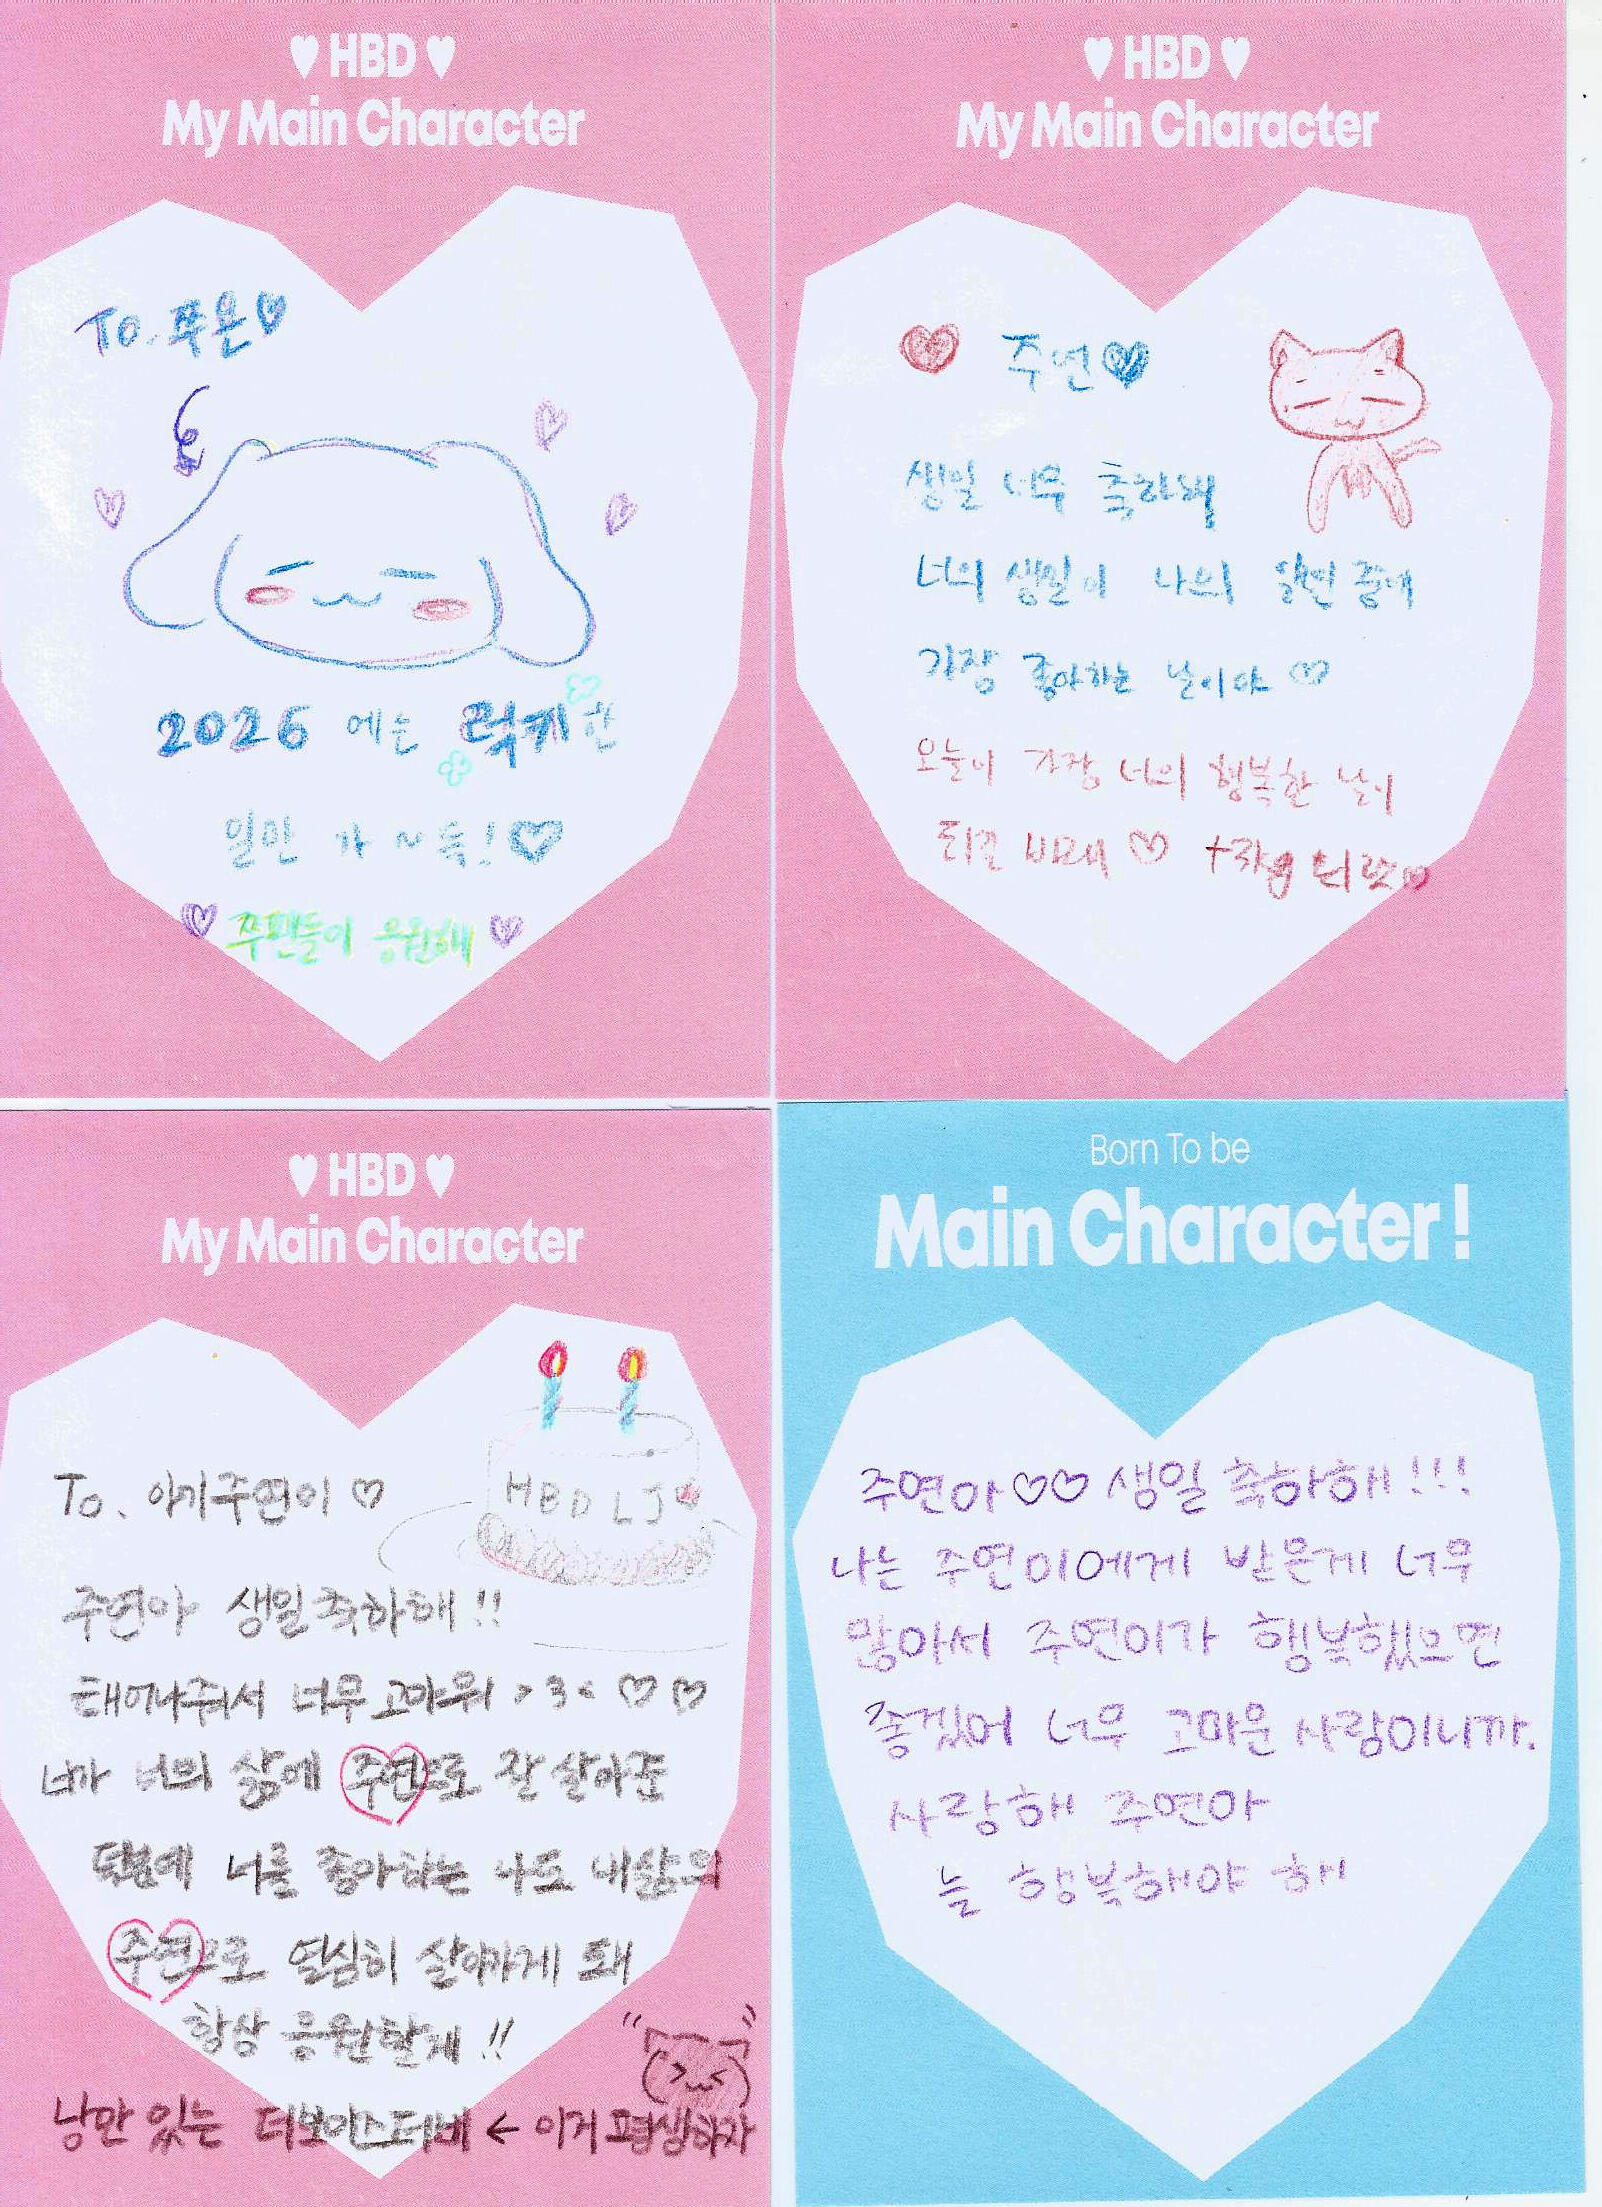 ♥ HBD ♥
My Main Character
To. 푸온♡
2026 에는 럭키한
일만 가~득!♡
♡ 주팬들이 응원해 ♡
♥ HBD ♥
My Main Character
♥ 주연♥
생일 너무 축하해
너의 생일이 나의 일년 중에
가장 좋아하는 날이야 ♡
오늘이 가장 너의 행복한 날이
되길 바래 ♡
♥ HBD ♥
My Main Character
HBD LJ
To. 아기주연이 ♡
주연아 생일축하해!!
태어나줘서 너무 고마워 >3< ♡♡
너가 너의 삶에 주연으로 잘 살아준
덕분에 너를 좋아하는 나도 내삶의
주연으로 열심히 살아가게 돼
항상 응원할게!!
낭만 있는 더보이즈더비 ← 이거 평생하자
Born To be
Main Character!
주연아♡♡ 생일 축하해!!!
나는 주연이에게 받은게 너무
많아서 주연이가 행복했으면
좋겠어 너무 고마운 사람이니까.
사랑해 주연아
늘 행복해야 해